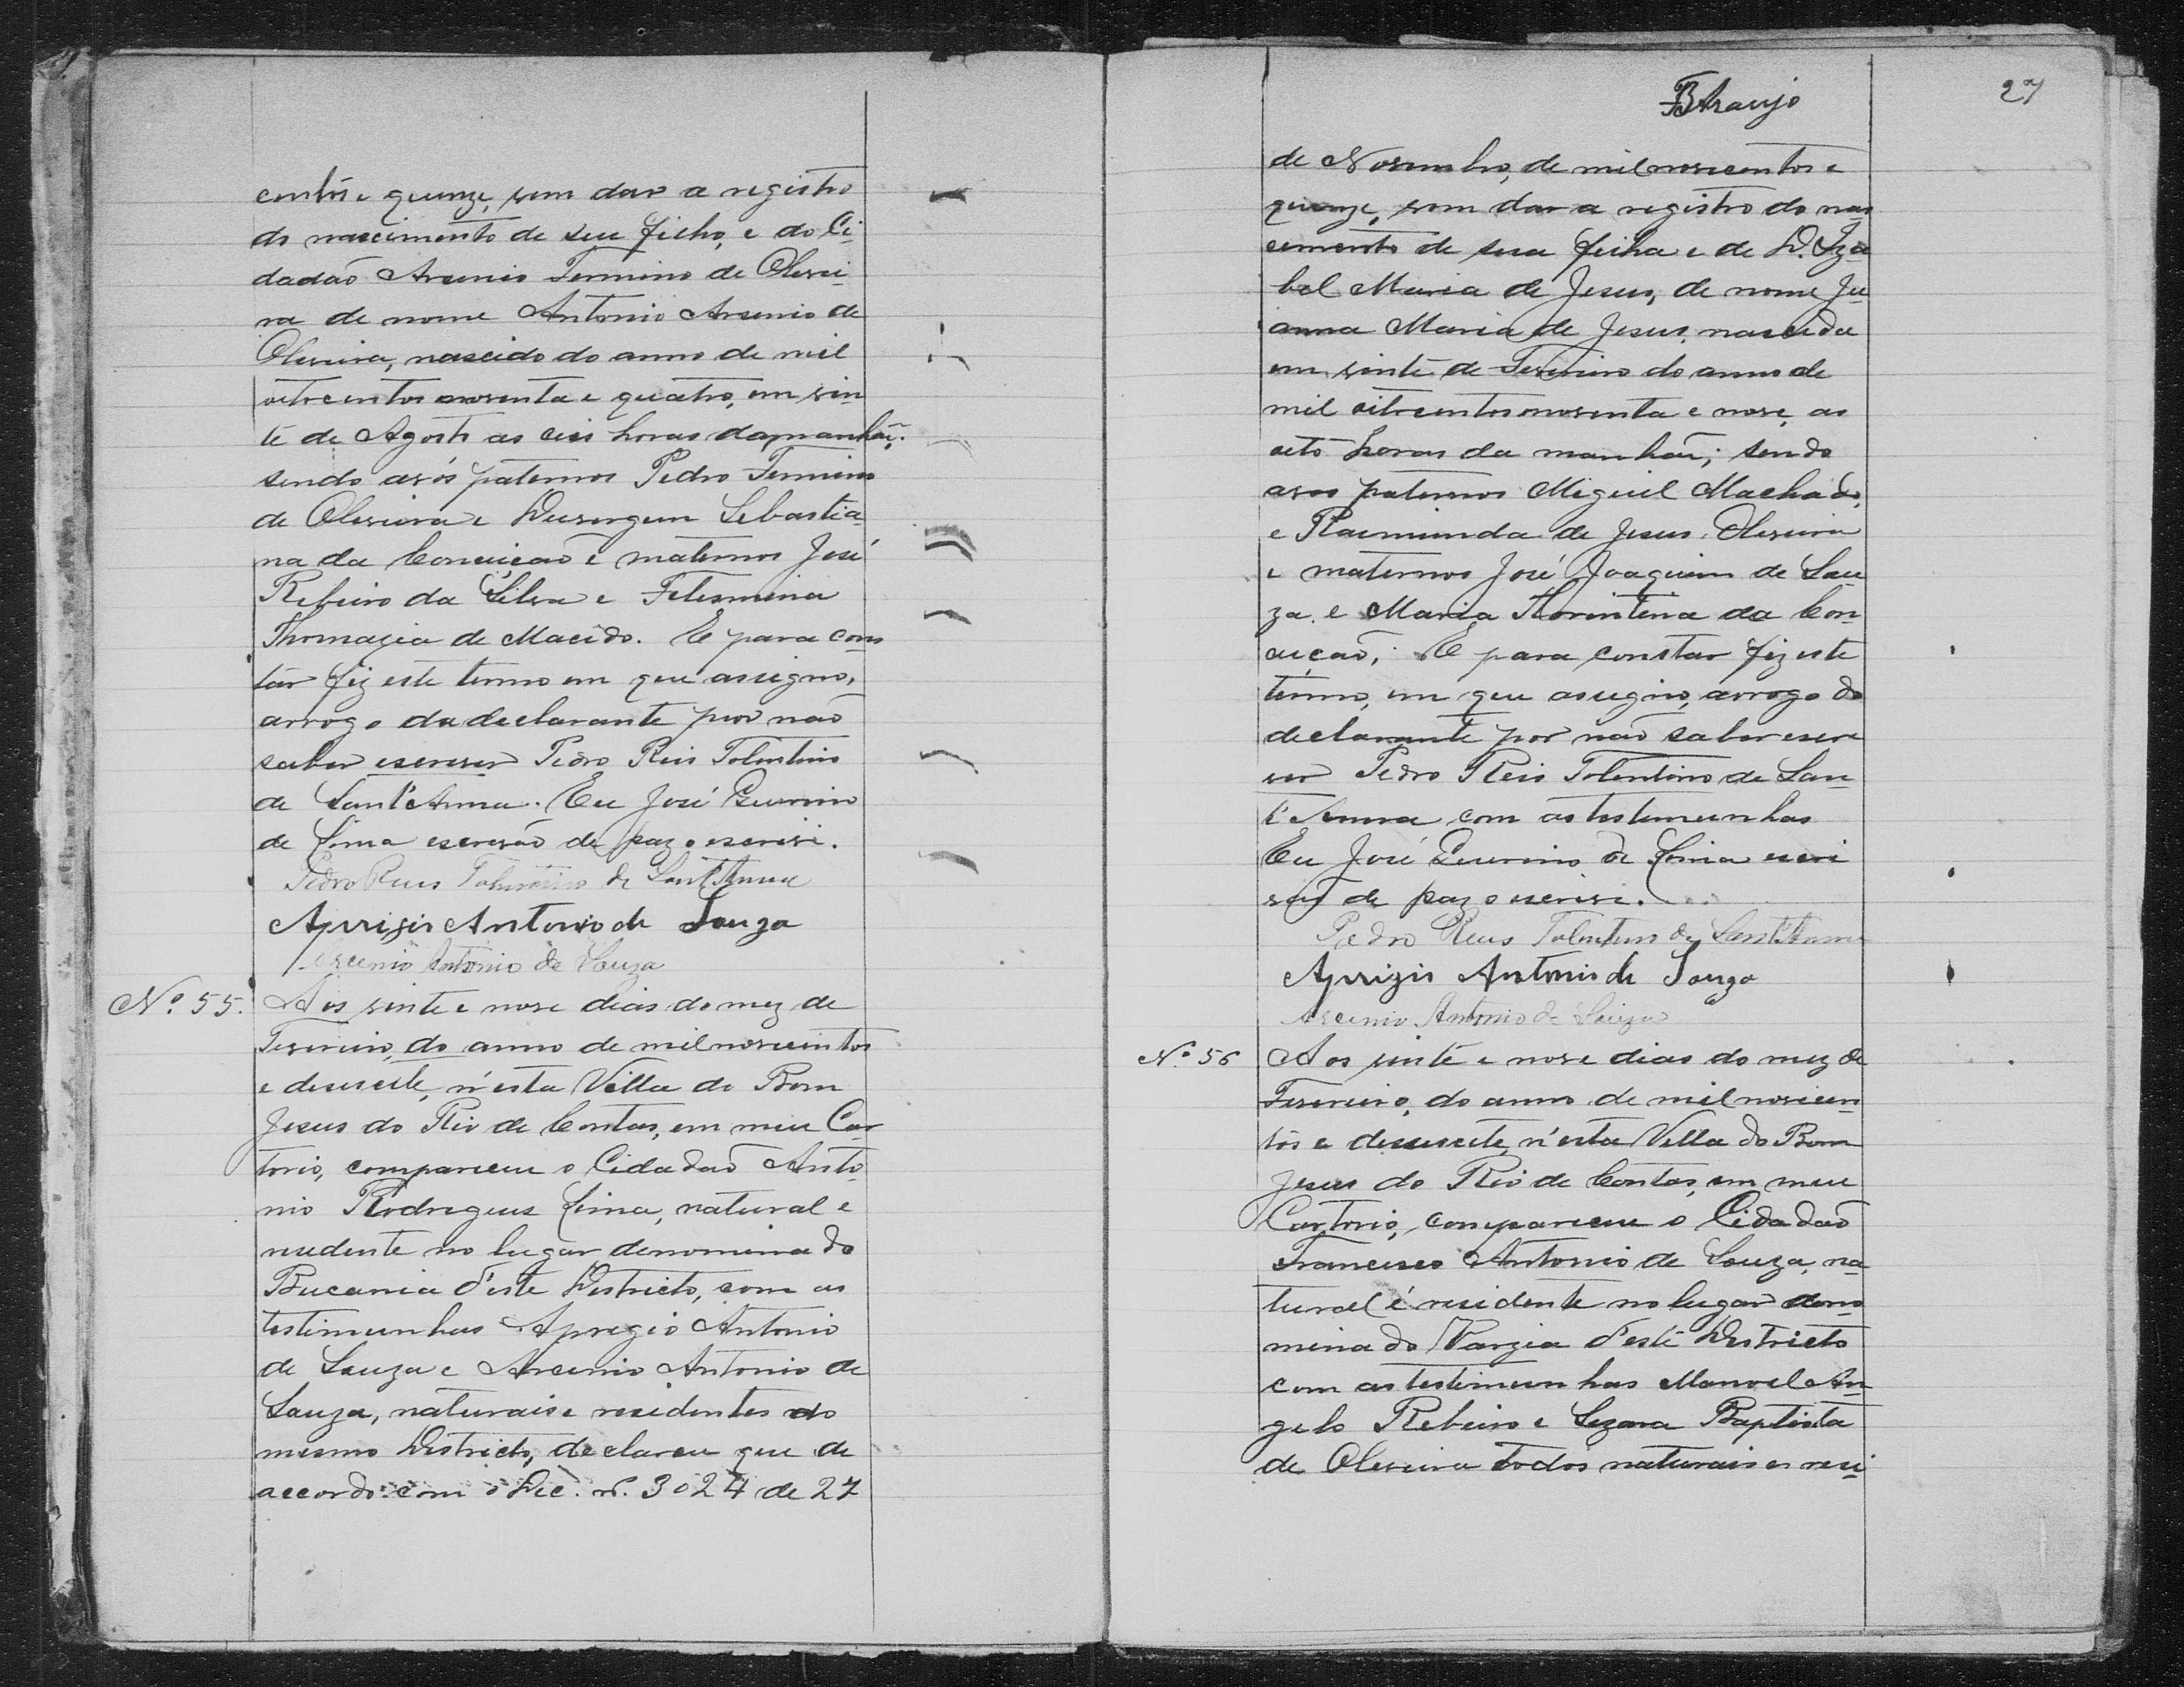 centos e quinze, vem dar a registro
do nascimento de seu filho, e do Ci-
dadão Arsenio Firmino de Olivei-
ra de nome Antonio Arsenio de
Oliveira, nascido do anno de mil
oitocentos noventa e quatro, em vin-
te de Agosto as seis horas da manhaã.
sendo avós paternos Pedro Firmino
de Oliveira e Sebastia-
na da Conceição e maternos José
Ribeiro da Silva e
Thomazia de Macêdo. E para cons-
tar fiz este termo em que assigno,
arrogo da declarante por não
saber escrever Pedro Reis Tolentino
de Sant'Anna. Eu José Guirino
de Lima escrivão de paz o escrivi.
Pedro Reis Tolentino de Sant'Anna
Aprigio Antonio de Souza
Arcenio Antonio de Souza
Nº 55.
Aos vinte e nove dias do mez de
Fevereiro, do anno de mil novecentos
e desesete, n'esta Villa do Bom
Jesus do Rio de Contas, em meu Car-
torio, compareceu o Cidadão Anto-
nio Rodrigues Lima, natural e
residente no lugar denominado
Bucania d'este Districto, com as
testimunhas Aprigio Antonio
de Souza e Arcenio Antonio de
Souza, naturais e residentes no
mesmo Districto, declarou que de
accordo com o Dec. nº. 3024 de 27
BAraujo
27
de Novembro, de mil novecentos e
quinze, vem dar a registro do nas-
cimento de sua filha e de D. Iza-
bel Maria de Jesus, de nome Ju-
anna Maria de Jesus, nascida
em vinte de Fevereiro do anno de
mil oitocentos noventa e nove, as
oito horas da manhaã; sendo
avos paternos Miguel Machado,
e Raimunda de Jesus Oliveira
e maternos José Joaquim de Sou-
za, e Maria Florintina da Con-
ceição, E para constar fiz este
termo, em que assigno, arrogo do
declarante por não saber escre-
ver Pedro Reis Tolentino de San-
t'Anna com as testemunhas
Eu José Guirino de Lima escri-
vão de paz o escrivi.
Pedro Reis Tolentino de Sant'Anna
Aprigio Antonio de Souza
Arcenio Antonio de Souza
Nº 56
Aos vinte e nove dias do mez de
Fevereiro, do anno de mil novecen-
tos e desesete, n'esta Villa do Bom
Jesus do Rio de Contas, em meu
Cartorio, compareceu o Cidadão
Francisco Antonio de Souza, na-
tural é residente no lugar deno-
minado Varzia d'este Districto
com as testimunhas Manoel An-
gelo Ribeiro e Baptista
de Oliveira todos naturais es resi-